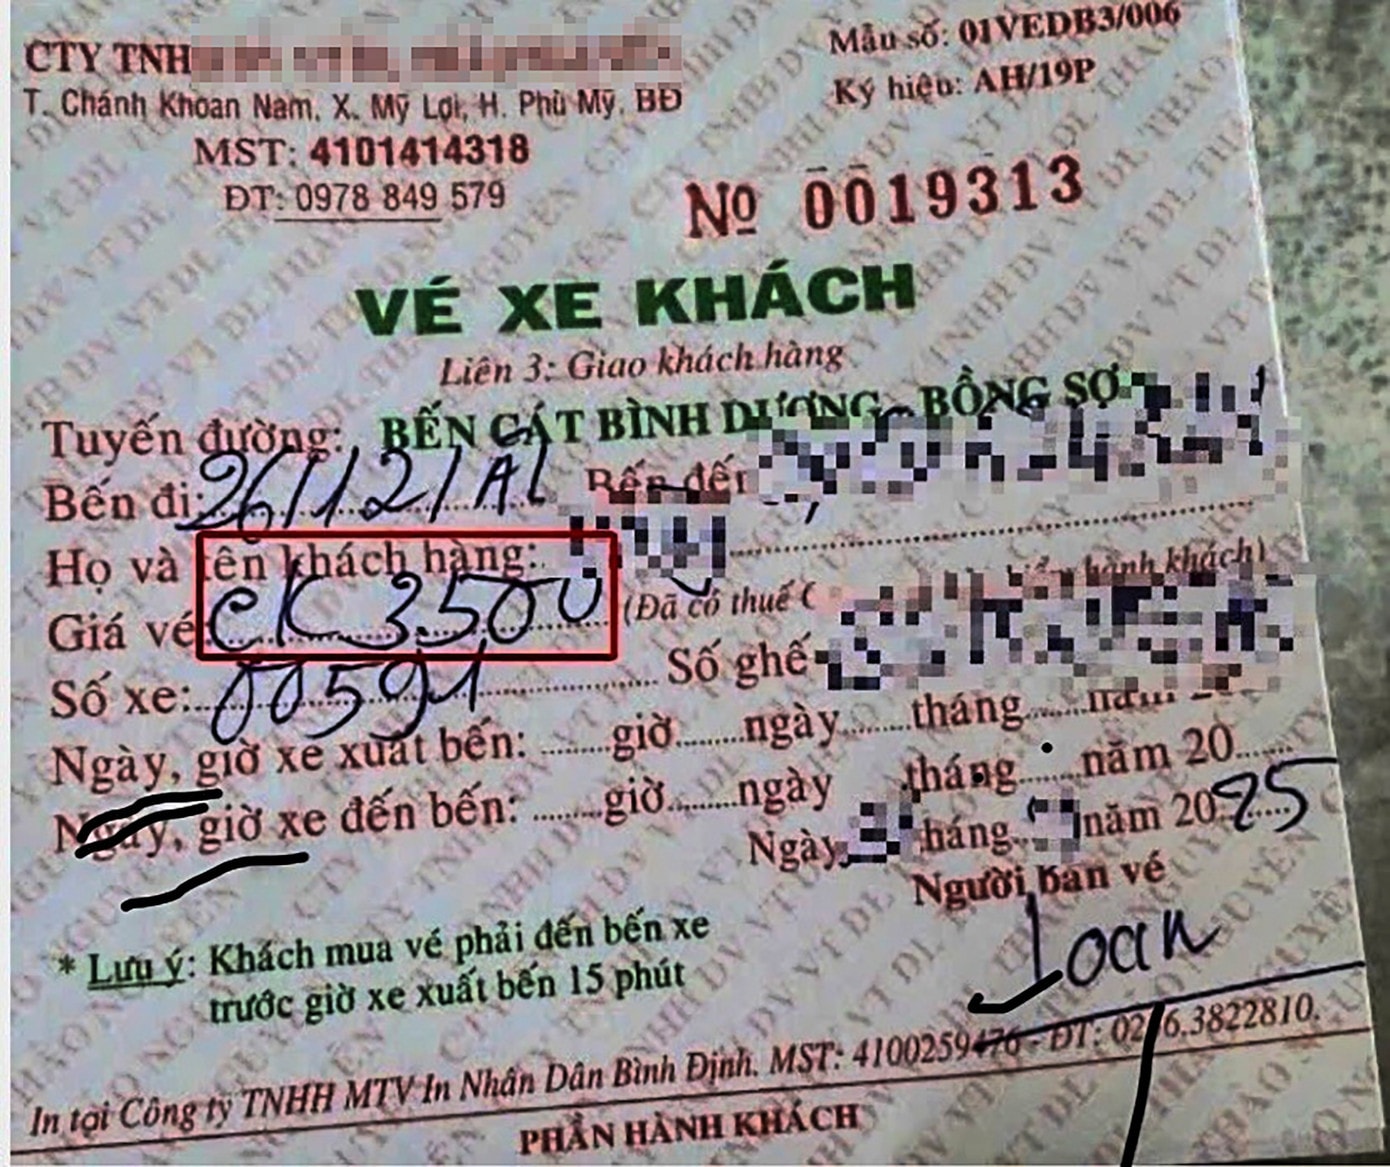 CTY TNH
T. Chánh Khoan Nam, X. Mỹ Lợi, H. Phù Mỹ, BĐ
MST: 4101414318
ĐT: 0978 849 579
Mẫu số: 01VEDB3/006
Ký hiệu: AH/19P
Nº 0019313
VÉ XE KHÁCH
Liên 3: Giao khách hàng
Tuyến đường: BẾN CÁT BÌNH DƯƠNG - BỒNG SƠ
Bến đi: 26/12/Al Bến đến
Họ và tên khách hàng:
Giá vé CK 3500 (Đã có thuế hành khách)
Số xe: 00591 Số ghế
Ngày, giờ xe xuất bến: ........giờ........ngày........tháng........năm 2
Ngày, giờ xe đến bến: ........giờ........ngày tháng........năm 20......
Ngày 3 tháng năm 2025
Người bán vé
Loan
* Lưu ý: Khách mua vé phải đến bến xe
trước giờ xe xuất bến 15 phút
In tại Công ty TNHH MTV In Nhân Dân Bình Định. MST: 4100259476 - ĐT: 0256.3822810.
PHẦN HÀNH KHÁCH